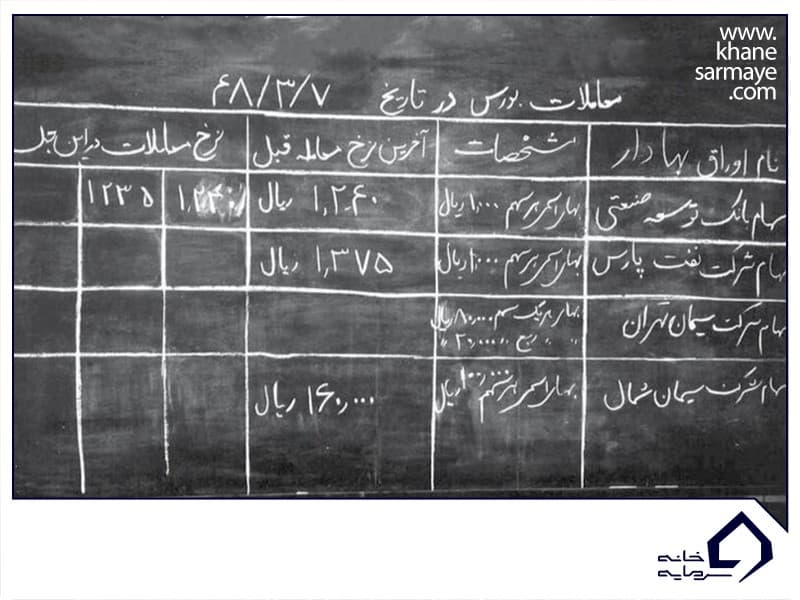 www.
khane
sarmaye
.com
معاملات بورس در تاریخ ۶۸/۳/۷
نام اوراق بهادار مشخصات آخرین نرخ معامله قبل نرخ معاملات در این جلسه
سهام بانک توسعه صنعتی بهای اسمی هر سهم ۱,۰۰۰ ریال ۱,۲۴۰ ریال ۱,۲۴۰ ۱۲۳۵
سهام شرکت نفت پارس بهای اسمی هر سهم ۱,۰۰۰ ریال ۱,۳۷۵ ریال
سهام شرکت سیمان تهران بهای هر یک سهم ۸۰,۰۰۰ ریال
" " ربع " ۲۰,۰۰۰ "
سهام شرکت سیمان شمال بهای اسمی هر سهم ۱۰۰,۰۰۰ ریال ۱۶۰,۰۰۰ ریال
خانه
سرمایه